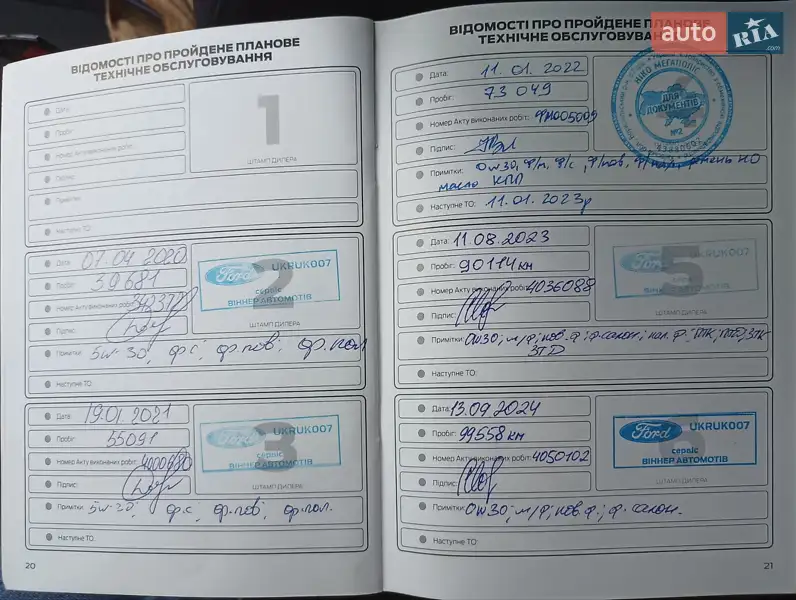 ВІДОМОСТІ ПРО ПРОЙДЕНЕ ПЛАНОВЕ
ТЕХНІЧНЕ ОБСЛУГОВУВАННЯ
Дата:
Пробіг:
Номер Акту виконаних робіт:
Підпис:
Примітки:
Наступне ТО:
1
ШТАМП ДИЛЕРА
Дата: 07.04 2020
Пробіг: 39681
Номер Акту виконаних робіт:
Підпис:
Примітки: 5w-30; ф.с; ф.пов; ф.пал
Наступне ТО:
2
Ford UKRUK007
сервіс
ВІННЕР АВТОМОТІВ
ШТАМП ДИЛЕРА
Дата: 19.01 2021
Пробіг: 55091
Номер Акту виконаних робіт:
Підпис:
Примітки: ф.с; ф.пов; ф.пал.
Наступне ТО:
3
Ford UKRUK007
сервіс
ВІННЕР АВТОМОТІВ
ШТАМП ДИЛЕРА
20
ВІДОМОСТІ ПРО ПРОЙДЕНЕ ПЛАНОВЕ
ТЕХНІЧНЕ ОБСЛУГОВУВАННЯ
auto RIA.com
Дата: 11.01.2022
Пробіг: 73 049
Номер Акту виконаних робіт:
Підпис:
Примітки: 0w30,
масло КПП
Наступне ТО: 11.01.2023р
НІКО МЕГАПОЛІС
ДЛЯ
ДОКУМЕНТІВ
№2
Дата: 11.08.2023
Пробіг: 90114км
Номер Акту виконаних робіт: 4036088
Підпис:
Примітки: 0w30; м/ф; пов.ф; ф.салон;
Наступне ТО:
5
Ford UKRUK007
сервіс
ВІННЕР АВТОМОТІВ
ШТАМП ДИЛЕРА
Дата: 13.09.2024
Пробіг: 99558км
Номер Акту виконаних робіт: 4050102
Підпис:
Примітки: 0w30; м/ф; пов.ф.; ф.салон.
Наступне ТО:
6
Ford UKRUK007
сервіс
ВІННЕР АВТОМОТІВ
ШТАМП ДИЛЕРА
21